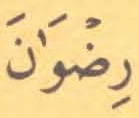 رِضْوَٰنَ